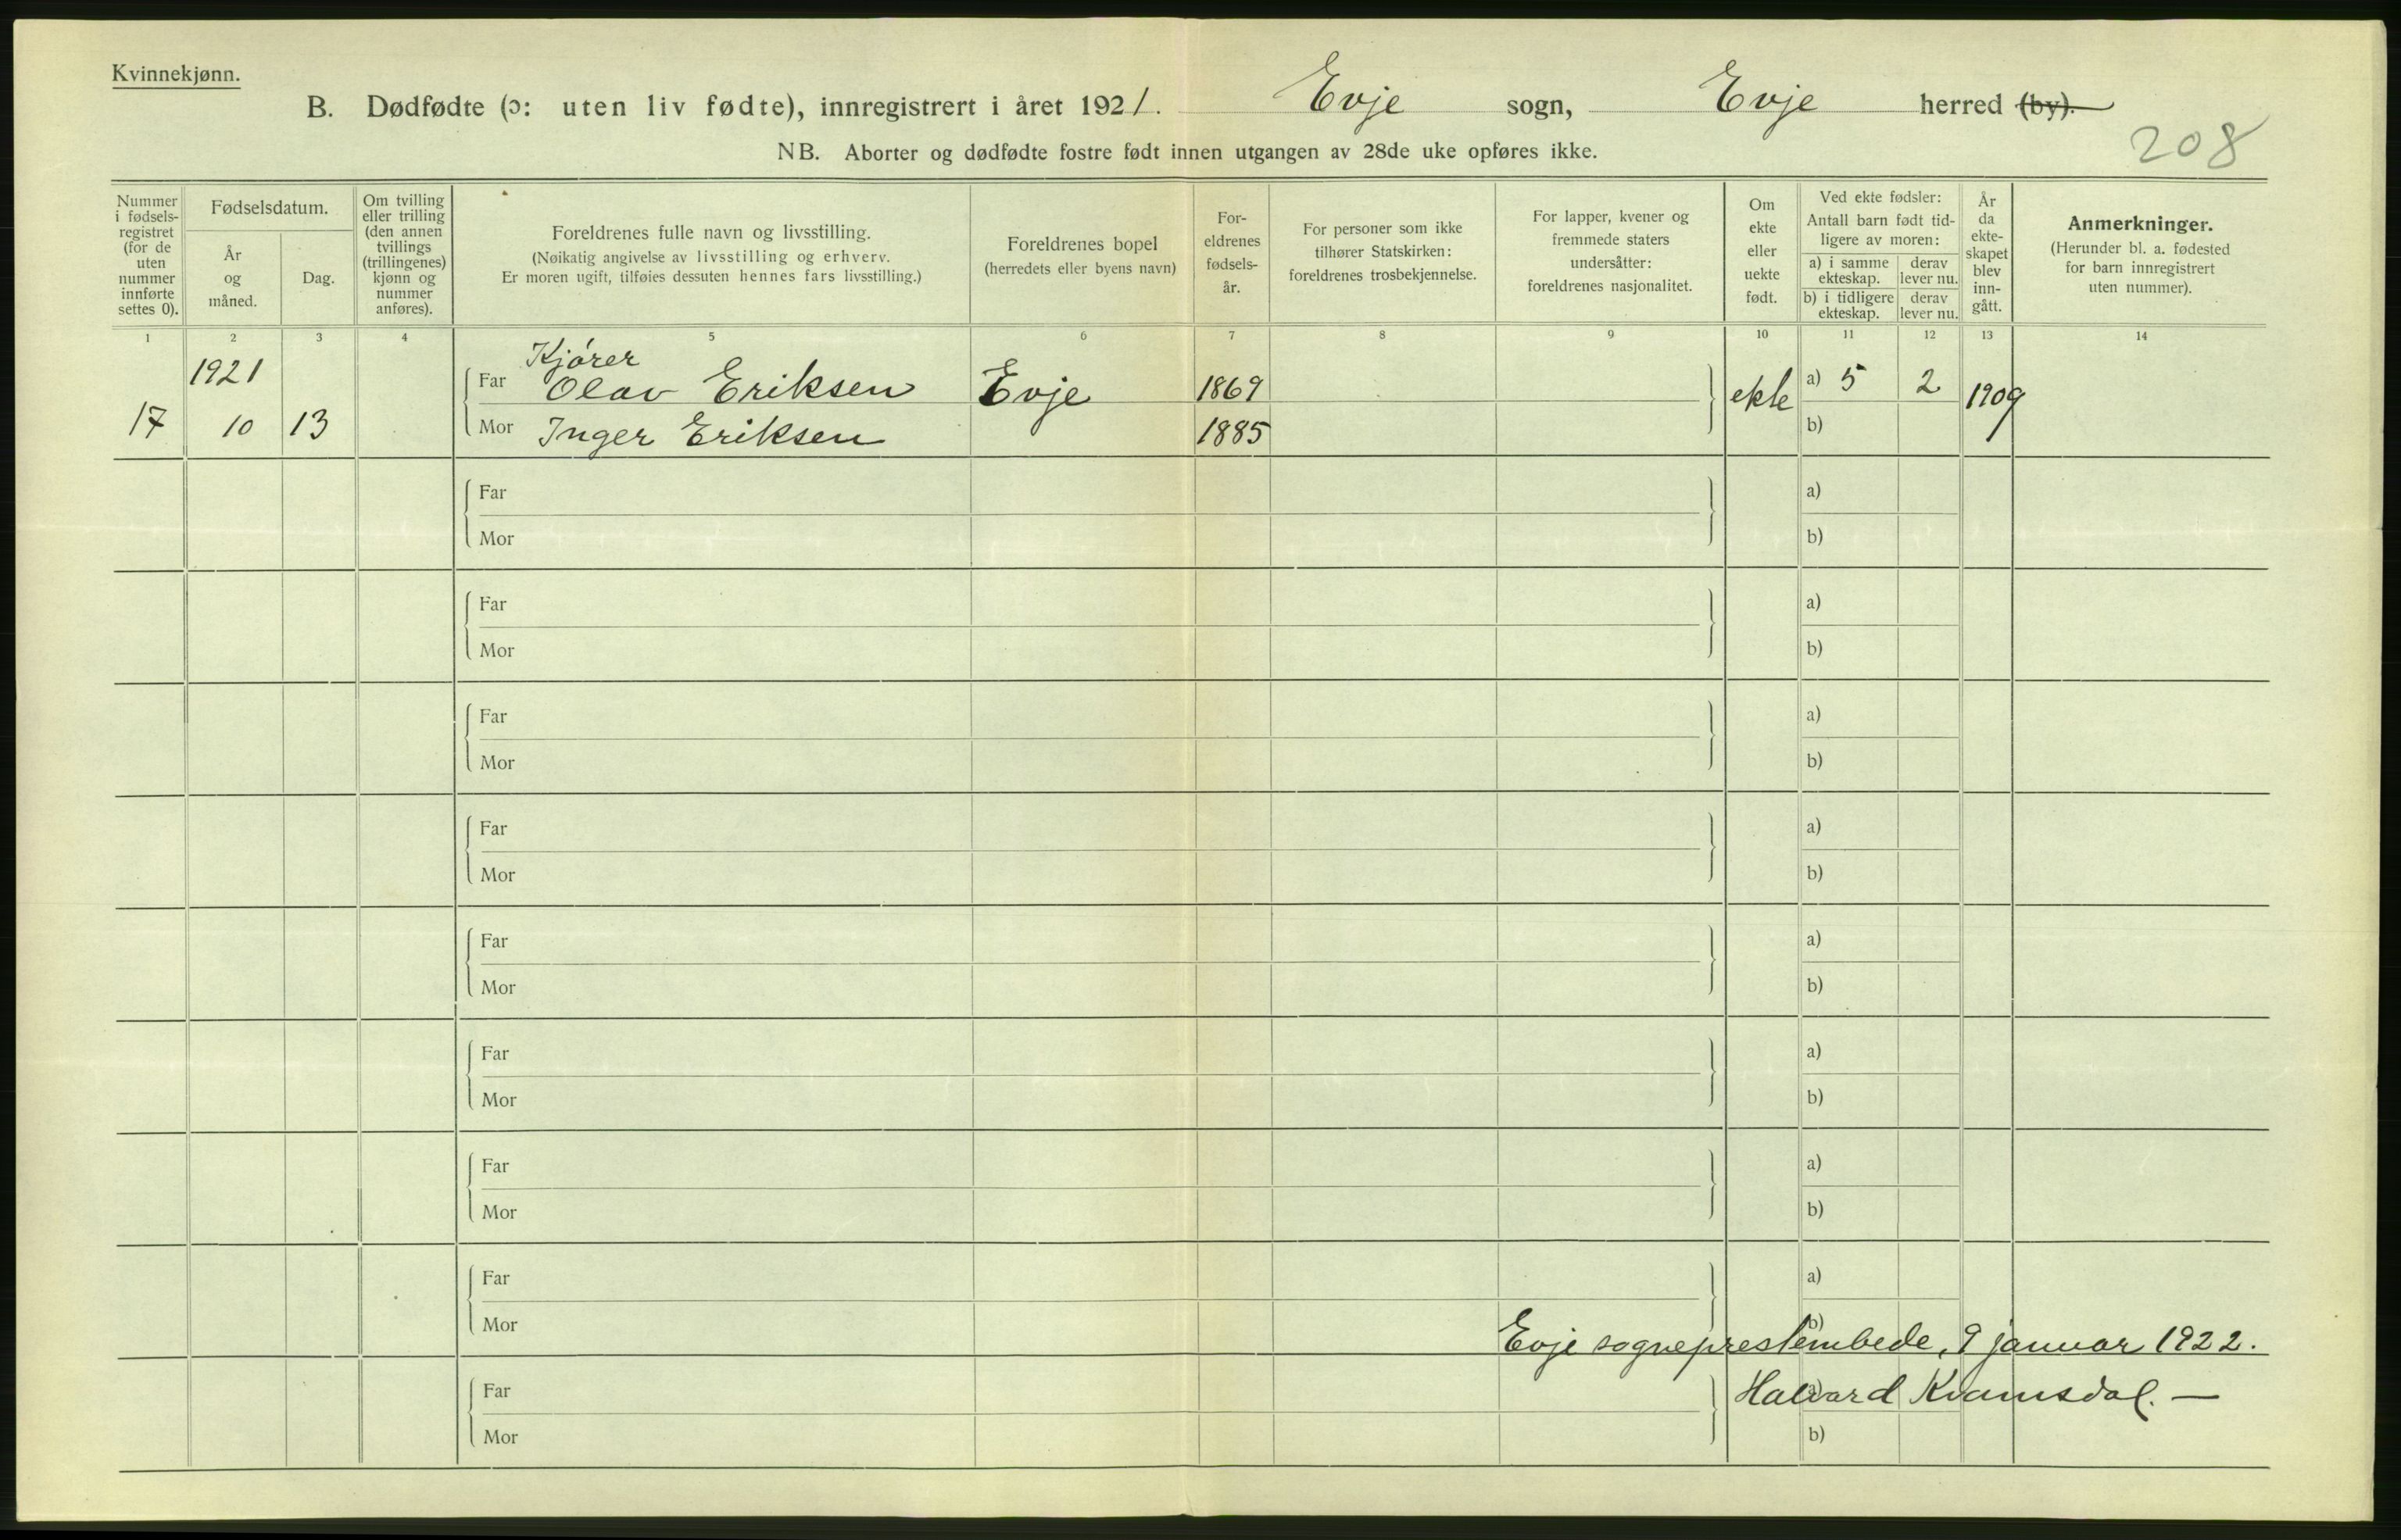 Kvinnekjønn.
B. Dødfødte (ɔ: uten liv fødte), innregistrert i året 1921. Evje sogn, Evje herred (by).
NB. Aborter og dødfødte fostre født innen utgangen av 28de uke opføres ikke.
208
Nummer i fødsels-registret (for de uten nummer innførte settes 0).
Fødselsdatum.
År og måned.
Dag.
Om tvilling eller trilling (den annen tvillings (trillingenes) kjønn og nummer anføres).
Foreldrenes fulle navn og livsstilling.
(Nøikatig angivelse av livsstilling og erhverv.
Er moren ugift, tilføies dessuten hennes fars livsstilling.)
Foreldrenes bopel
(herredets eller byens navn)
For-eldrenes fødsels-år.
For personer som ikke tilhører Statskirken: foreldrenes trosbekjennelse.
For lapper, kvener og fremmede staters undersåtter: foreldrenes nasjonalitet.
Om ekte eller uekte født.
Ved ekte fødsler:
Antall barn født tid-ligere av moren:
a) i samme ekteskap.
derav lever nu.
b) i tidligere ekteskap.
derav lever nu.
År da ekte-skapet blev inn-gått.
Anmerkninger.
(Herunder bl. a. fødested for barn innregistrert uten nummer).
1 2 3 4 5 6 7 8 9 10 11 12 13 14
1921 Kjórer
Far Olav Eriksen Evje 1869 ekte a) 5 2 1909
17 10 13 Mor Inger Eriksen 1885 b)
Far a)
Mor b)
Far a)
Mor b)
Far a)
Mor b)
Far a)
Mor b)
Far a)
Mor b)
Far a)
Mor b)
Far a)
Mor b)
Far a)
Mor b)
Evje sogneprestembede, 9 januar 1922.
Far a)
Halvard Kvamsdal. —
Mor b)